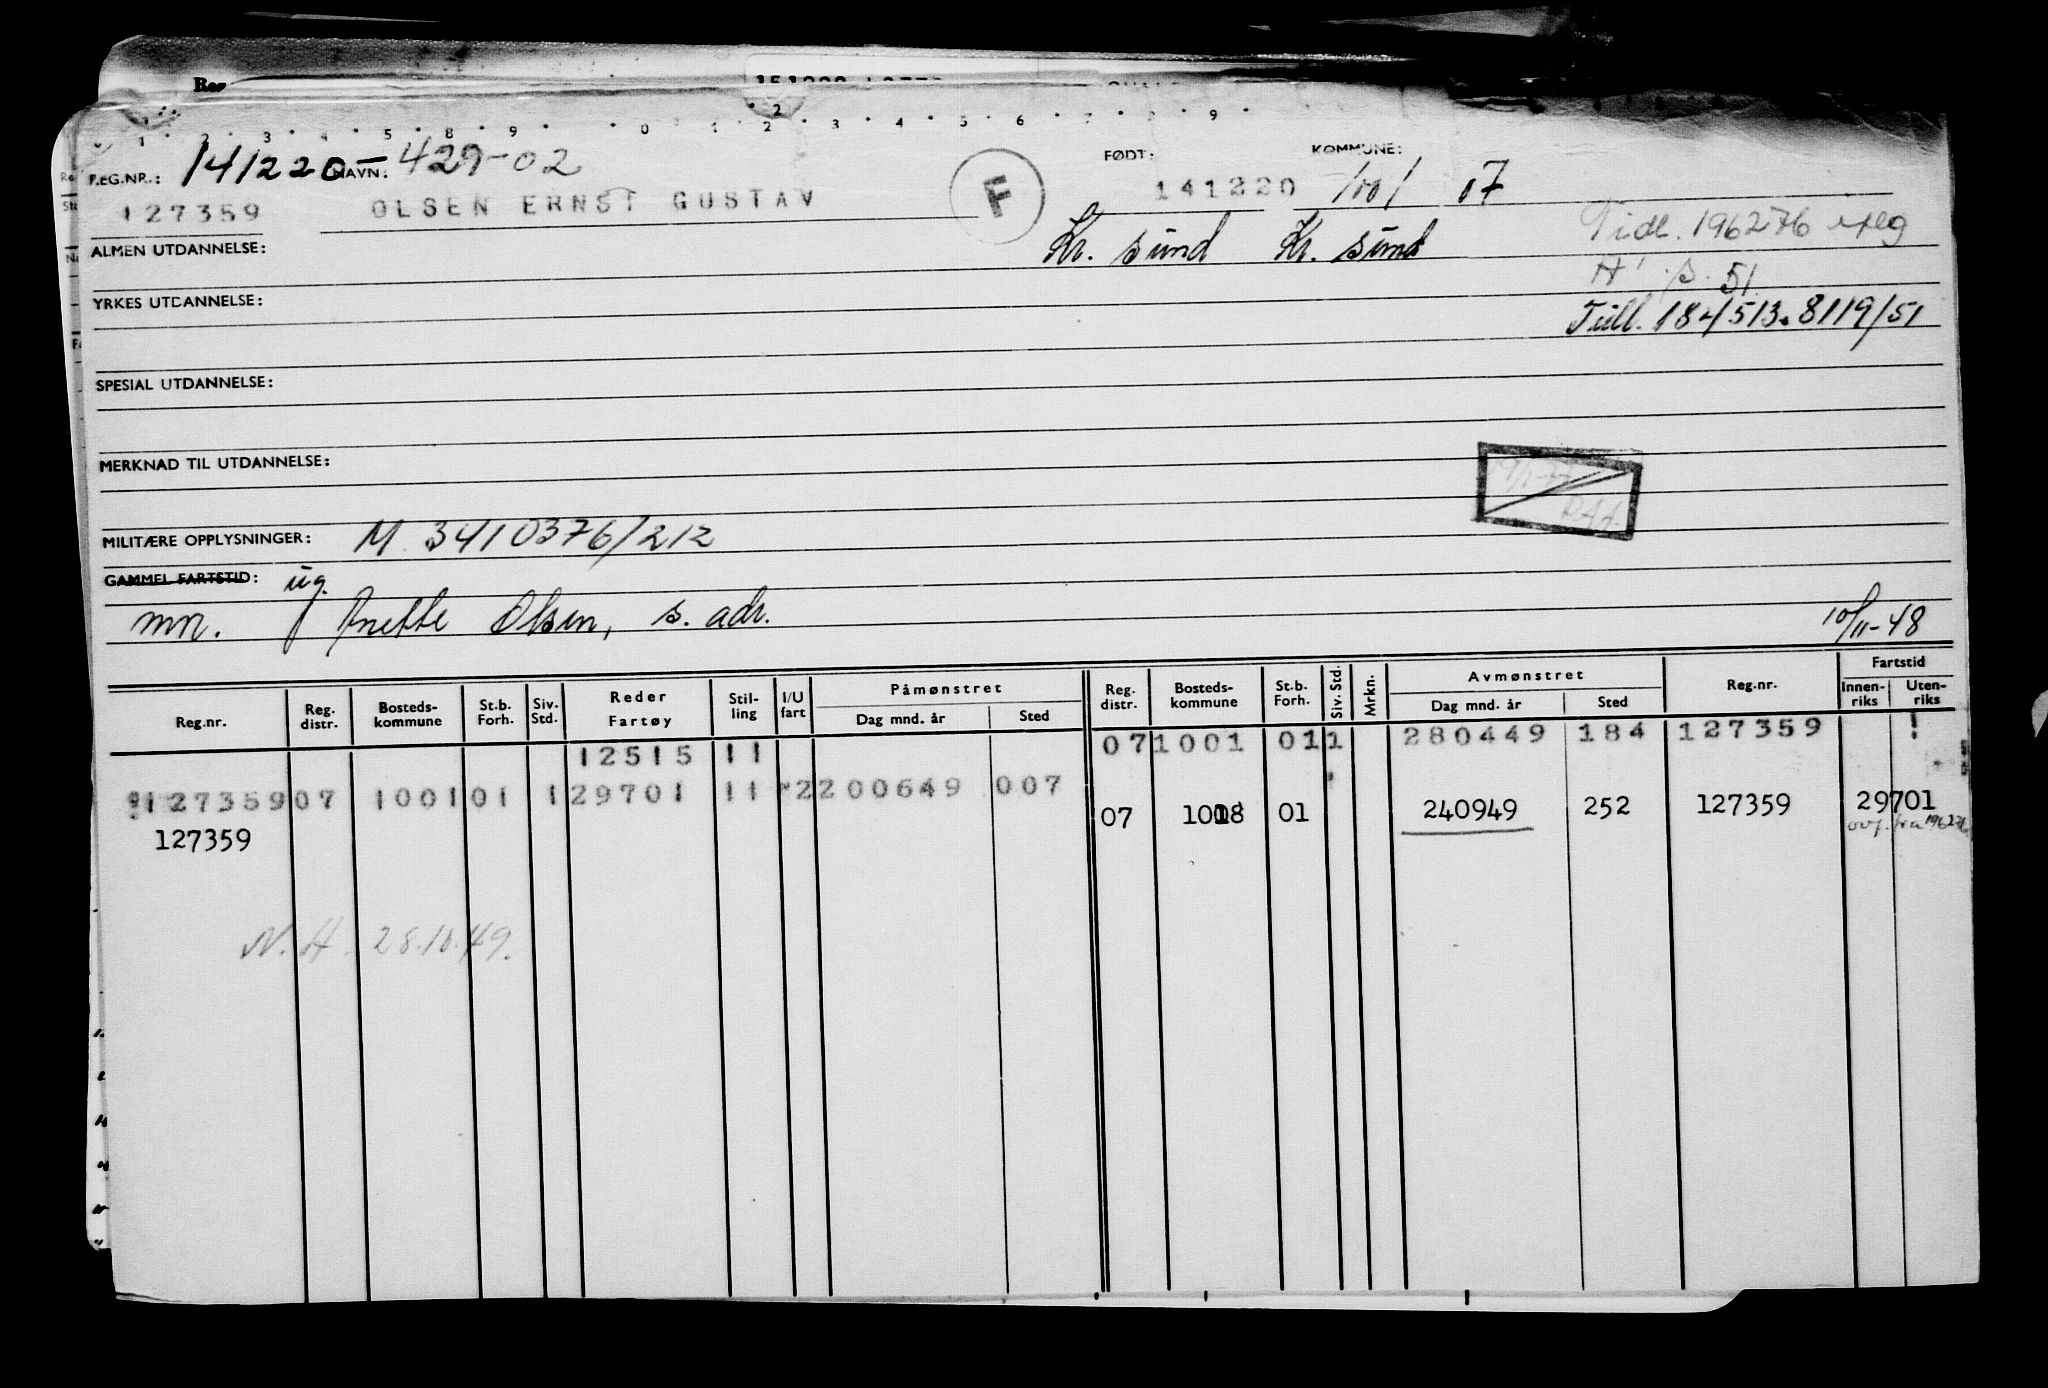 1 2 3 4 5 8 9 0 1 2 3 4 5 6 7 8 9
REG.NR.: 141220 NAVN: 429-02 FØDT: KOMMUNE:
127359 OLSEN ERNST GUSTAV F 141220 1001 07
Kr. sund Kr. sund Tidl. 196276
ALMEN UTDANNELSE:
H p. 51
YRKES UTDANNELSE:
184513. 8119/51
SPESIAL UTDANNELSE:
MERKNAD TIL UTDANNELSE:
MILITÆRE OPPLYSNINGER: M. 3410376/212
GAMMEL FARTSTID: ug.
mn. Anette Olsen, s. adr. 10/11-48
Reg.nr. Reg. distr. Bosteds-kommune St.b. Forh. Siv. Std. Reder Fartøy Stil-ling I/U fart Påmønstret Dag mnd. år Sted Reg. distr. Bosteds-kommune St.b. Forh. Siv. Std. Mrkn. Avmønstret Dag mnd. år Sted Reg.nr. Fartstid Innen-riks Uten-riks
12515 11 07 1001 01 1 280449 184 127359
127359 07 1001 01 1 29701 11 2 200649 007
07 01 240949 252 127359 29701
127359 ovf. fra 196276
N.H. 28.10.49.